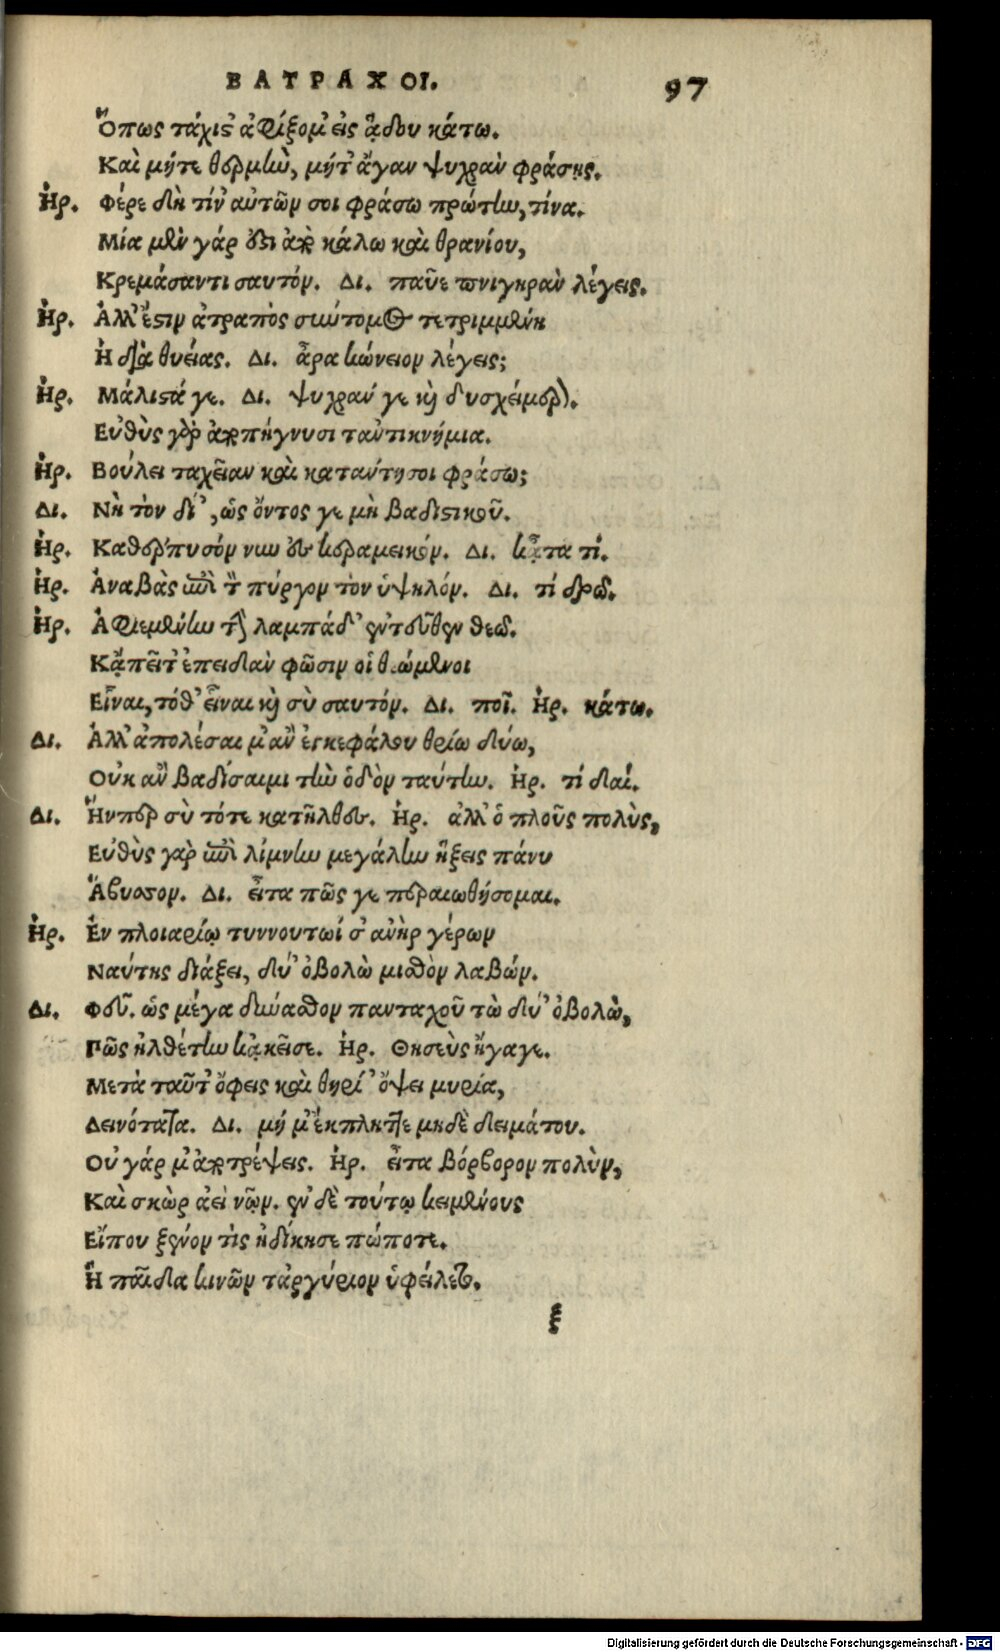 ΒΑΤΡΑΧΟΙ. 97
Ὅπως τάχιστ' ἀφίξομ' εἰς ᾅδου κάτω.
Καὶ μήτε θερμὴν, μήτ' ἄγαν ψυχρὰν φράσης.
Ἡρ. Φέρε δὴ τίν' αὐτῶν σοι φράσω πρώτην, τίνα.
Μία μὲν γάρ ἐστι ἀπὸ κάλω καὶ θρανίου,
Κρεμάσαντι σαυτόν. Δι. παῦε πνιγηρὰν λέγεις.
Ἡρ. Ἀλλ' ἔστιν ἀτραπὸς σύντομος τετριμμένη
Ἡ διὰ θυείας. Δι. ἆρα κώνειον λέγεις;
Ἡρ. Μάλιστά γε. Δι. ψυχράν γε καὶ δυσχείμερον.
Εὐθὺς γὰρ ἀποπήγνυσι ταὐτικνήμια.
Ἡρ. Βούλει ταχεῖαν καὶ κατάντη σοι φράσω;
Δι. Νὴ τὸν δί', ὡς ὄντος γε μὴ βαδιστικοῦ.
Ἡρ. Καθέρπυσόν νυν ἐν κεραμεικόν. Δι. κᾆτα τί.
Ἡρ. Ἀναβὰς ἐπὶ τὸν πύργον τὸν ὑψηλόν. Δι. τί δρῶ.
Ἡρ. Ἀφιεμένην τὴν λαμπάδ' ἐντεῦθεν θεῶ.
Κἄπειτ' ἐπειδὰν φῶσιν οἱ θεώμενοι
Εἶναι, τόθ' εἶναι καὶ σὺ σαυτόν. Δι. ποῖ. Ἡρ. κάτω.
Δι. Ἀλλ' ἀπολέσαι μ' ἂν ἐγκεφάλου θρίω δύω,
Οὐκ ἂν βαδίσαιμι τὴν ὁδὸν ταύτην. Ἡρ. τί δαί.
Δι. Ἥνπερ σὺ τότε κατῆλθες. Ἡρ. ἀλλ' ὁ πλοῦς πολὺς,
Εὐθὺς γὰρ ἐπὶ λίμνην μεγάλην ἥξεις πάνυ
Ἄβυσσον. Δι. εἶτα πῶς γε περαιωθήσομαι.
Ἡρ. Ἐν πλοιαρίῳ τυννουτωί σ' ἀνὴρ γέρων
Ναύτης διάξει, δύ' ὀβολὼ μισθὸν λαβών.
Δι. Φεῦ. ὡς μέγα δύνασθον πανταχοῦ τὼ δύ' ὀβολὼ,
Πῶς ἠλθέτην κἀκεῖσε. Ἡρ. Θησεὺς ἤγαγε.
Μετὰ ταῦτ' ὄφεις καὶ θηρί' ὄψει μυρία,
Δεινότατα. Δι. μή μ' ἔκπληττε μηδὲ δειμάτου.
Οὐ γάρ μ' ἀποτρέψεις. Ἡρ. εἶτα βόρβορον πολὺν,
Καὶ σκὼρ ἀεὶ νῶν. ἐν δὲ τούτῳ κειμένους
Εἴπου ξένον τὶς ἠδίκησε πώποτε.
Ἢ παῖδα κινῶν τἀργύριον ὑφείλετο.
ξ
Digitalisierung gefördert durch die Deutsche Forschungsgemeinschaft - DFG